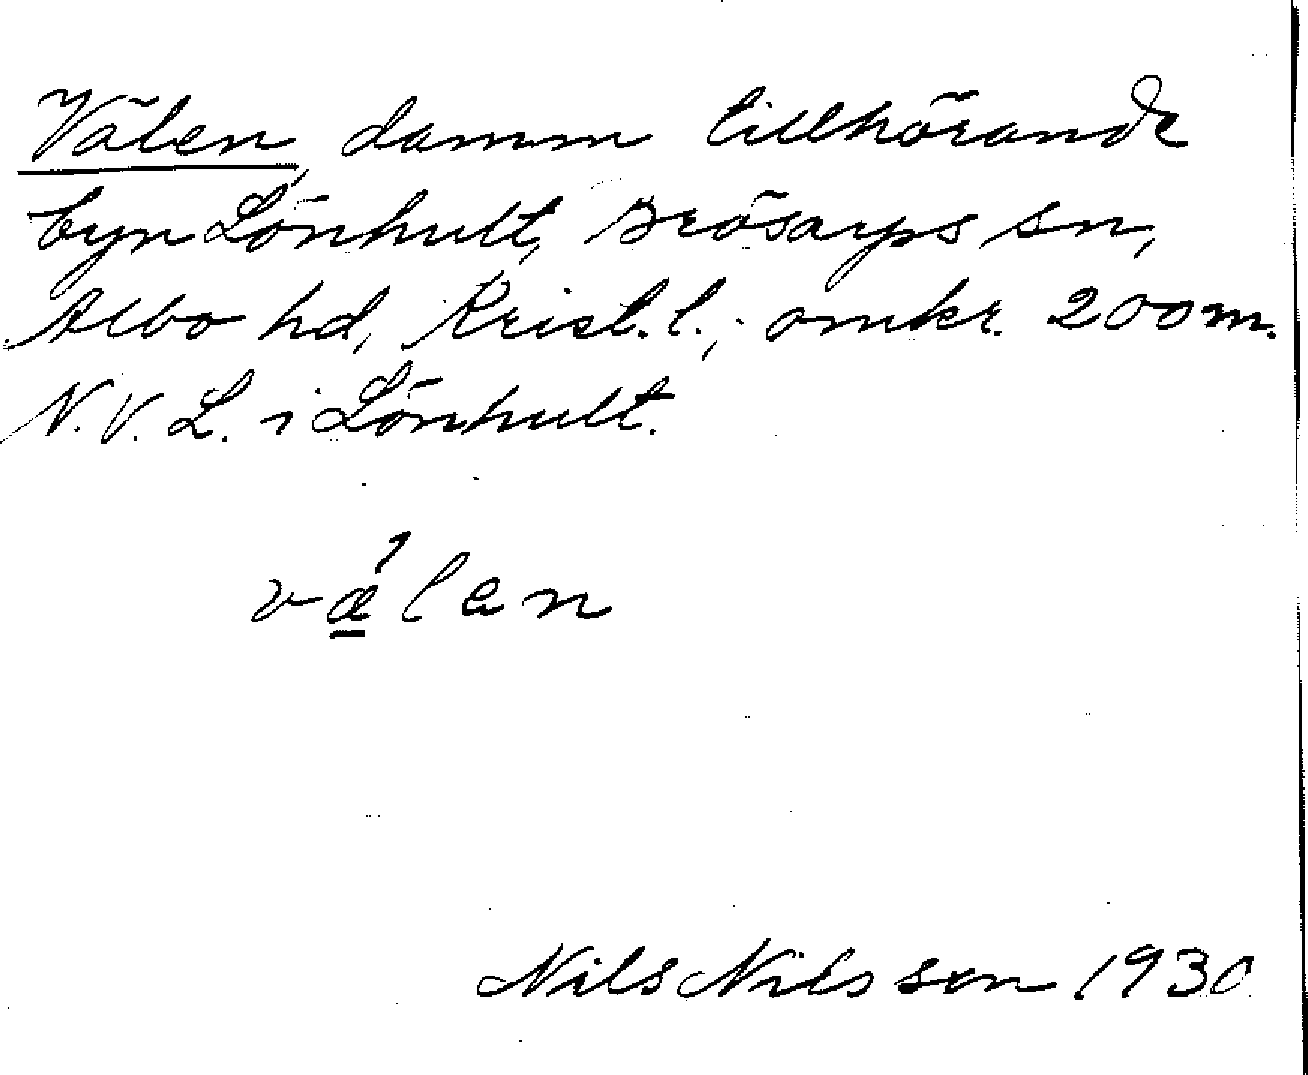 Välen, damm tillhörande
byn Lönhult, Brösarps sn,
Albo hd, Krist. l., omkr. 200 m.
N. V. L. i Lönhult.
vǽ̱len
Nils Nilsson 1930